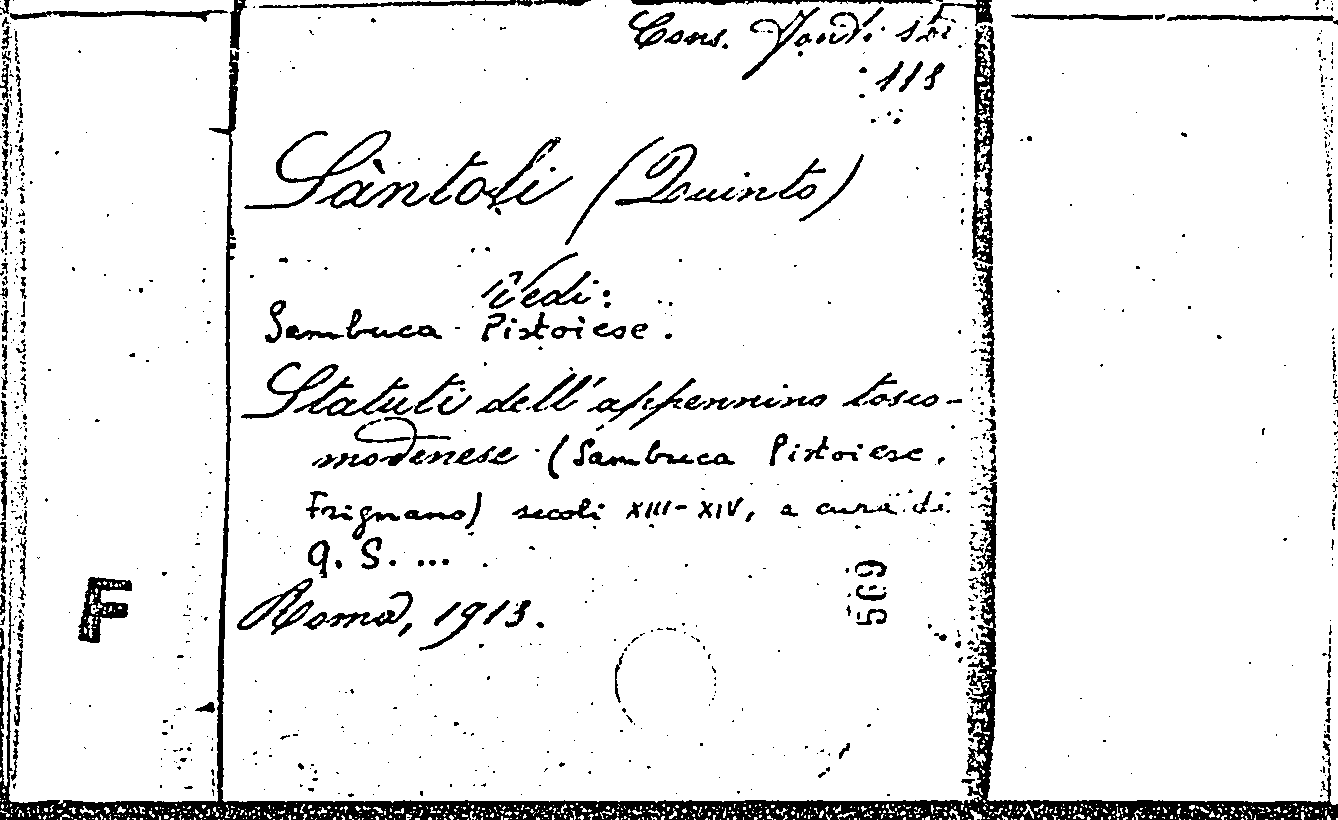 Cons.
113
Sàntoli (Quinto)
Vedi:
Sambuca Pistoiese.
Statuti dell'appennino tosco-
modenese (Sambuca Pistoiese,
Frignano) secoli XIII-XIV, a cura di
Q. S. ...
Roma, 1913.
F
569